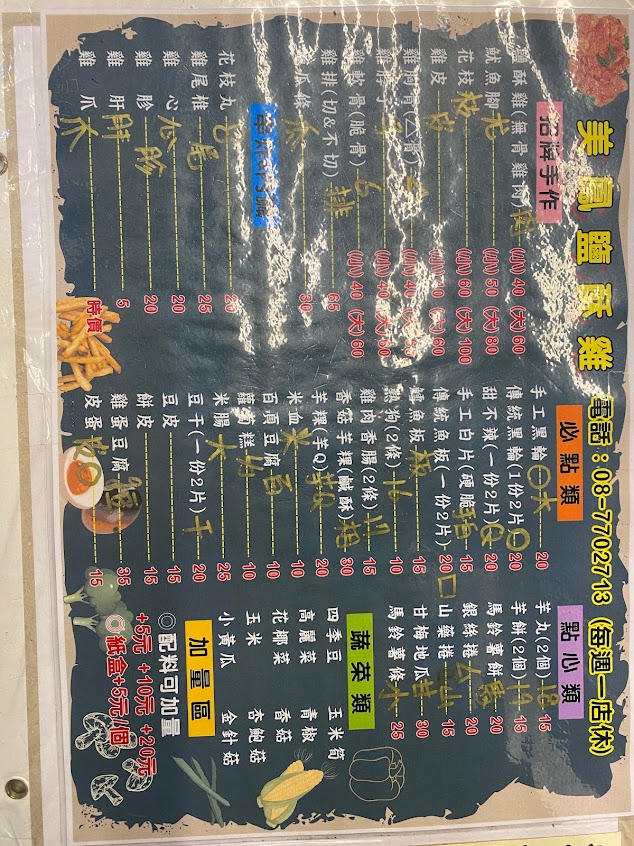 美鳳鹽酥雞 電話：08-7702713 (每週一店休)
招牌手作
鹽酥雞(無骨雞肉) (小) 40 (大) 60
魷魚腳 (小) 50 (大) 80
花枝 (小) 60 (大) 100
雞皮 (大) 60
(小) 40
雞脖子 (小) 40
雞軟骨(脆骨) (小) 40 (大) 60
雞排(切&不切) 65
瓜條 30
花枝丸 25
雞尾椎 25
雞心 20
雞胗 20
雞肝 5
雞爪 時價
必點類
手工黑輪 20
傳統黑輪(1份2片) 20
甜不辣(一份2片) 20
手工白片(硬脆) 20
傳統魚板(一份2片) 20
鱈魚板 15
熱狗(2條) 10
雞肉香腸(2條) 15
香菇芋粿(鹹酥) 30
芋粿(芋Q) 20
米血 10
百頁豆腐 10
蘿蔔糕 10
米腸 25
豆干(一份2片) 20
豆皮 15
餅皮 15
雞蛋豆腐 35
皮蛋 15
點心類
芋丸(2個) 15
芋餅(2個) 15
馬鈴薯餅 20
銀絲卷 20
山藥捲 15
甘梅地瓜 30
馬鈴薯條 25
蔬菜類
四季豆 玉米筍
高麗菜 青椒
花椰菜 香菇
玉米 杏鮑菇
小黃瓜 金針菇
加量區
◎配料可加量
+5元 +10元 +20元
◎紙盒+5元/個